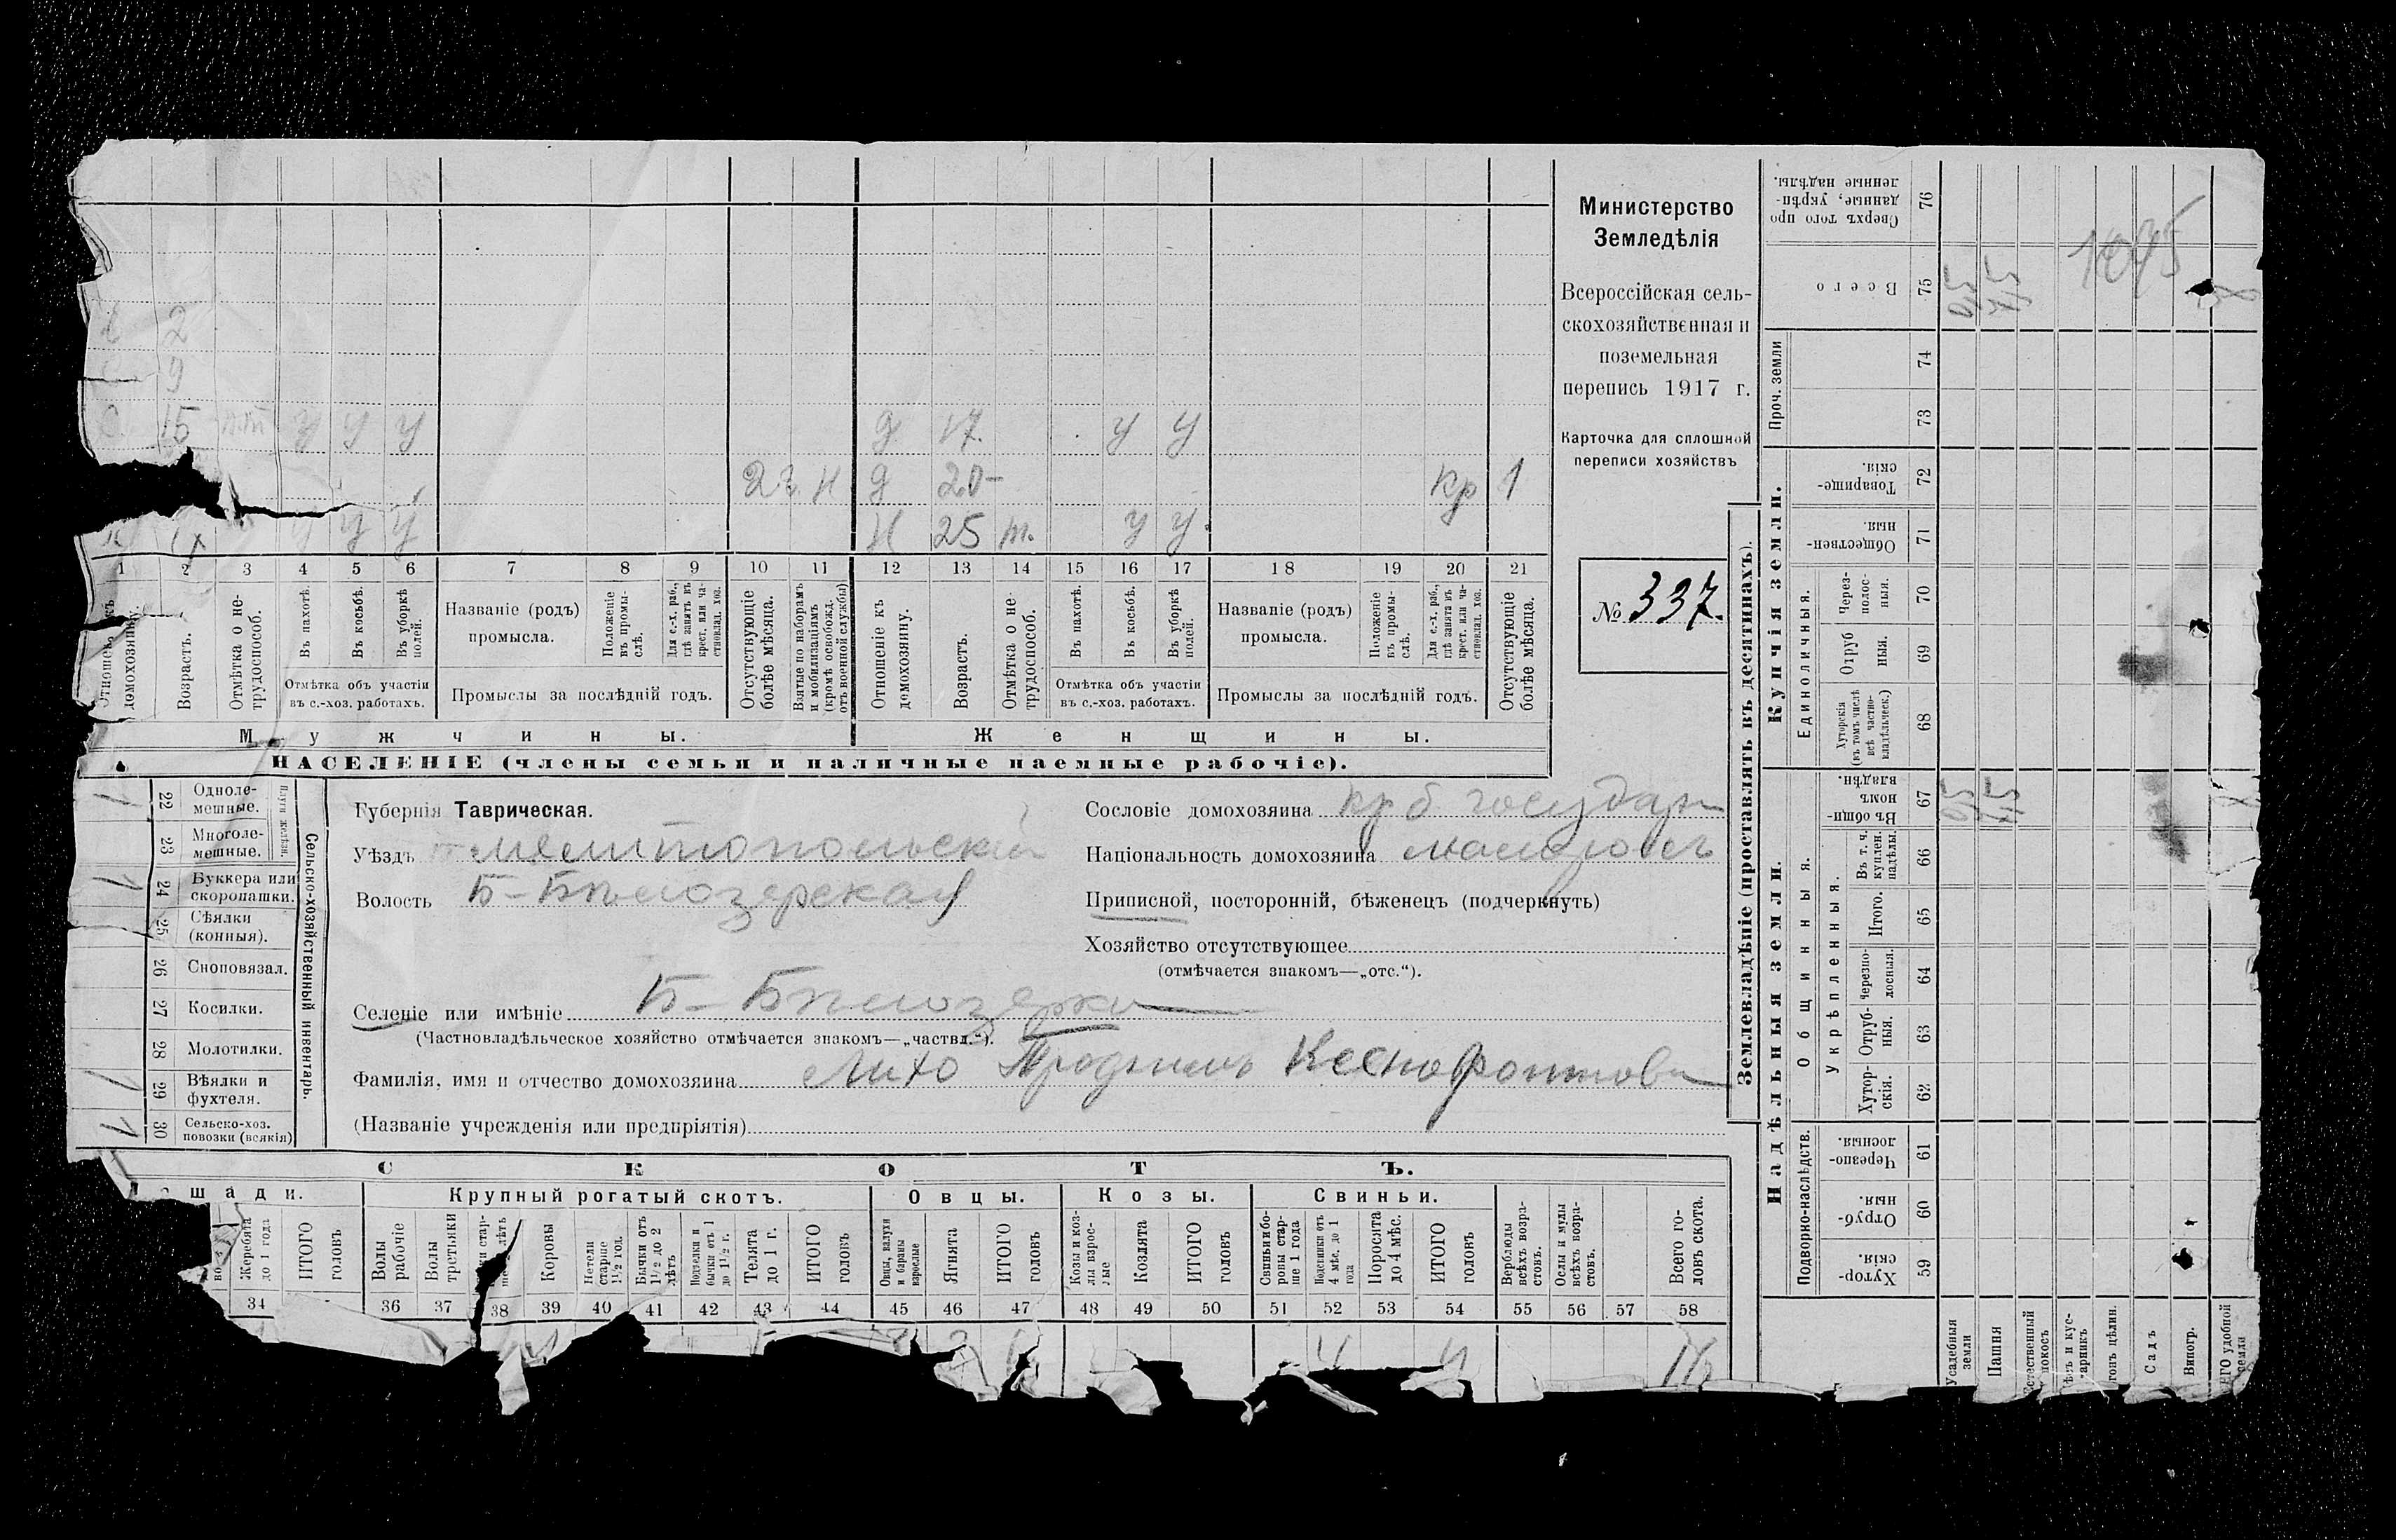 2
9
15 У У У
д 17. У У
2 г. Н д 20- Кр 1
У У Н 25 т. У У
1 2 3 4 5 6 7 8 9 10 11 12 13 14 15 16 17 18 19 20 21
домохозяину.
Возрастъ.
Отмѣтка о не-
трудоспособ.
Въ пахотѣ.
Въ косьбѣ.
Въ уборкѣ
полей.
Отмѣтка объ участіи
въ с.-хоз. работахъ.
Названіе (родъ)
промысла.
Положеніе
въ промы-
слѣ.
Для с.-х. раб.,
гдѣ занятъ въ
крест. или ча-
стновлад. хоз.
Промыслы за послѣдній годъ.
Отсутствующіе
болѣе мѣсяца.
Взятые по наборамъ
и мобилизаціямъ
(кромѣ освобожд.
отъ военной службы)
Отношеніе къ
домохозяину.
Возрастъ.
Отмѣтка о не
трудоспособ.
Въ пахотѣ.
Въ косьбѣ.
Въ уборкѣ
полей.
Отмѣтка объ участіи
въ с.-хоз. работахъ.
Названіе (родъ)
промысла.
Положеніе
въ промы-
слѣ.
Для с.-х. раб.,
гдѣ занята въ
крест. или ча-
стновлад. хоз.
Промыслы за послѣдній годъ.
Отсутствующіе
болѣе мѣсяца.
Мужчины.
Женщины.
НАСЕЛЕНІЕ (члены семьи и наличные наемные рабочіе).
Министерство
Земледѣлія
Всероссійская сель-
скохозяйственная и
поземельная
перепись 1917 г.
Карточка для сплошной
переписи хозяйствъ
№ 337.
1 22 Одноле-
мешные.
23 Многоле-
мешные.
Плуги желѣзн.
1 24 Буккера или
скоропашки.
25 Сѣялки
(конныя).
26 Сноповязал.
27 Косилки.
28 Молотилки.
1 29 Вѣялки и
фухтеля.
1 30 Сельско-хоз.
повозки (всякія)
Сельско-хозяйственный инвентарь.
Губернія Таврическая.
Уѣздъ Мелитопольскій
Волость Б-Бѣлозерская
Селеніе или имѣніе Б-Бѣлозерка
(Частновладѣльческое хозяйство отмѣчается знакомъ—„частвл.“).
Фамилія, имя и отчество домохозяина Лихо Ксенофонтови
(Названіе учрежденія или предпріятія)
Сословіе домохозяина кр б государ
Національность домохозяина малоросъ
Приписной, посторонній, бѣженецъ (подчеркнуть)
Хозяйство отсутствующее
(отмѣчается знакомъ—„отс.“).
СКОТЪ.
шади.
Жеребята
до 1 года
ИТОГО
головъ
Крупный рогатый скотъ.
Волы
рабочіе
Волы
третьяки
Коровы
Нетели
старше
1½ год.
Бычки отъ
1½ до 2
лѣтъ
Подтелки и
бычки отъ 1
до 1½ г.
Телята
до 1 г.
ИТОГО
головъ
Овцы.
Овцы, валухи
и бараны
взрослые
Ягнята
ИТОГО
головъ
Козы.
Козы и коз-
лы взрос-
лые
Козлята
ИТОГО
головъ
Свиньи.
Свиньи и бо-
ровы стар-
ше 1 года
Подсвинки отъ
4 мѣс. до 1
года
Поросята
до 4 мѣс.
ИТОГО
головъ
Верблюды
всѣхъ возра-
стовъ.
Ослы и мулы
всѣхъ возра-
стовъ.
Всего го-
ловъ скота.
34 36 37 38 39 40 41 42 43 44 45 46 47 48 49 50 51 52 53 54 55 56 57 58
4 4 16
Землевладѣніе (проставлять въ десятинахъ).
Сверхъ того про
данные, укрѣп-
ленные надѣлы.
76
Всего
75
1045
Проч. земли
74
73
Купчія земли.
Товарище-
скія.
72
Обществен-
ныя.
71
Единоличныя.
Через-
полос-
ныя.
70
Отруб
ныя.
69
Хуторскія
(въ томъ числѣ
всѣ частно-
владѣльческ.)
68
Надѣльныя земли.
Общинныя.
Въ общин-
номъ
владѣн.
67
Укрѣпленныя.
Въ т. ч.
куплен.
надѣлы.
66
Итого.
65
Черезпо-
лосныя.
64
Отруб-
ныя.
63
Хутор-
скія.
62
Подворно-наслѣдств.
Черезпо-
лосныя.
61
Отруб-
ныя.
60
Хутор-
скія.
59
Усадебныя
земли
Пашня
Садъ
Виногр.